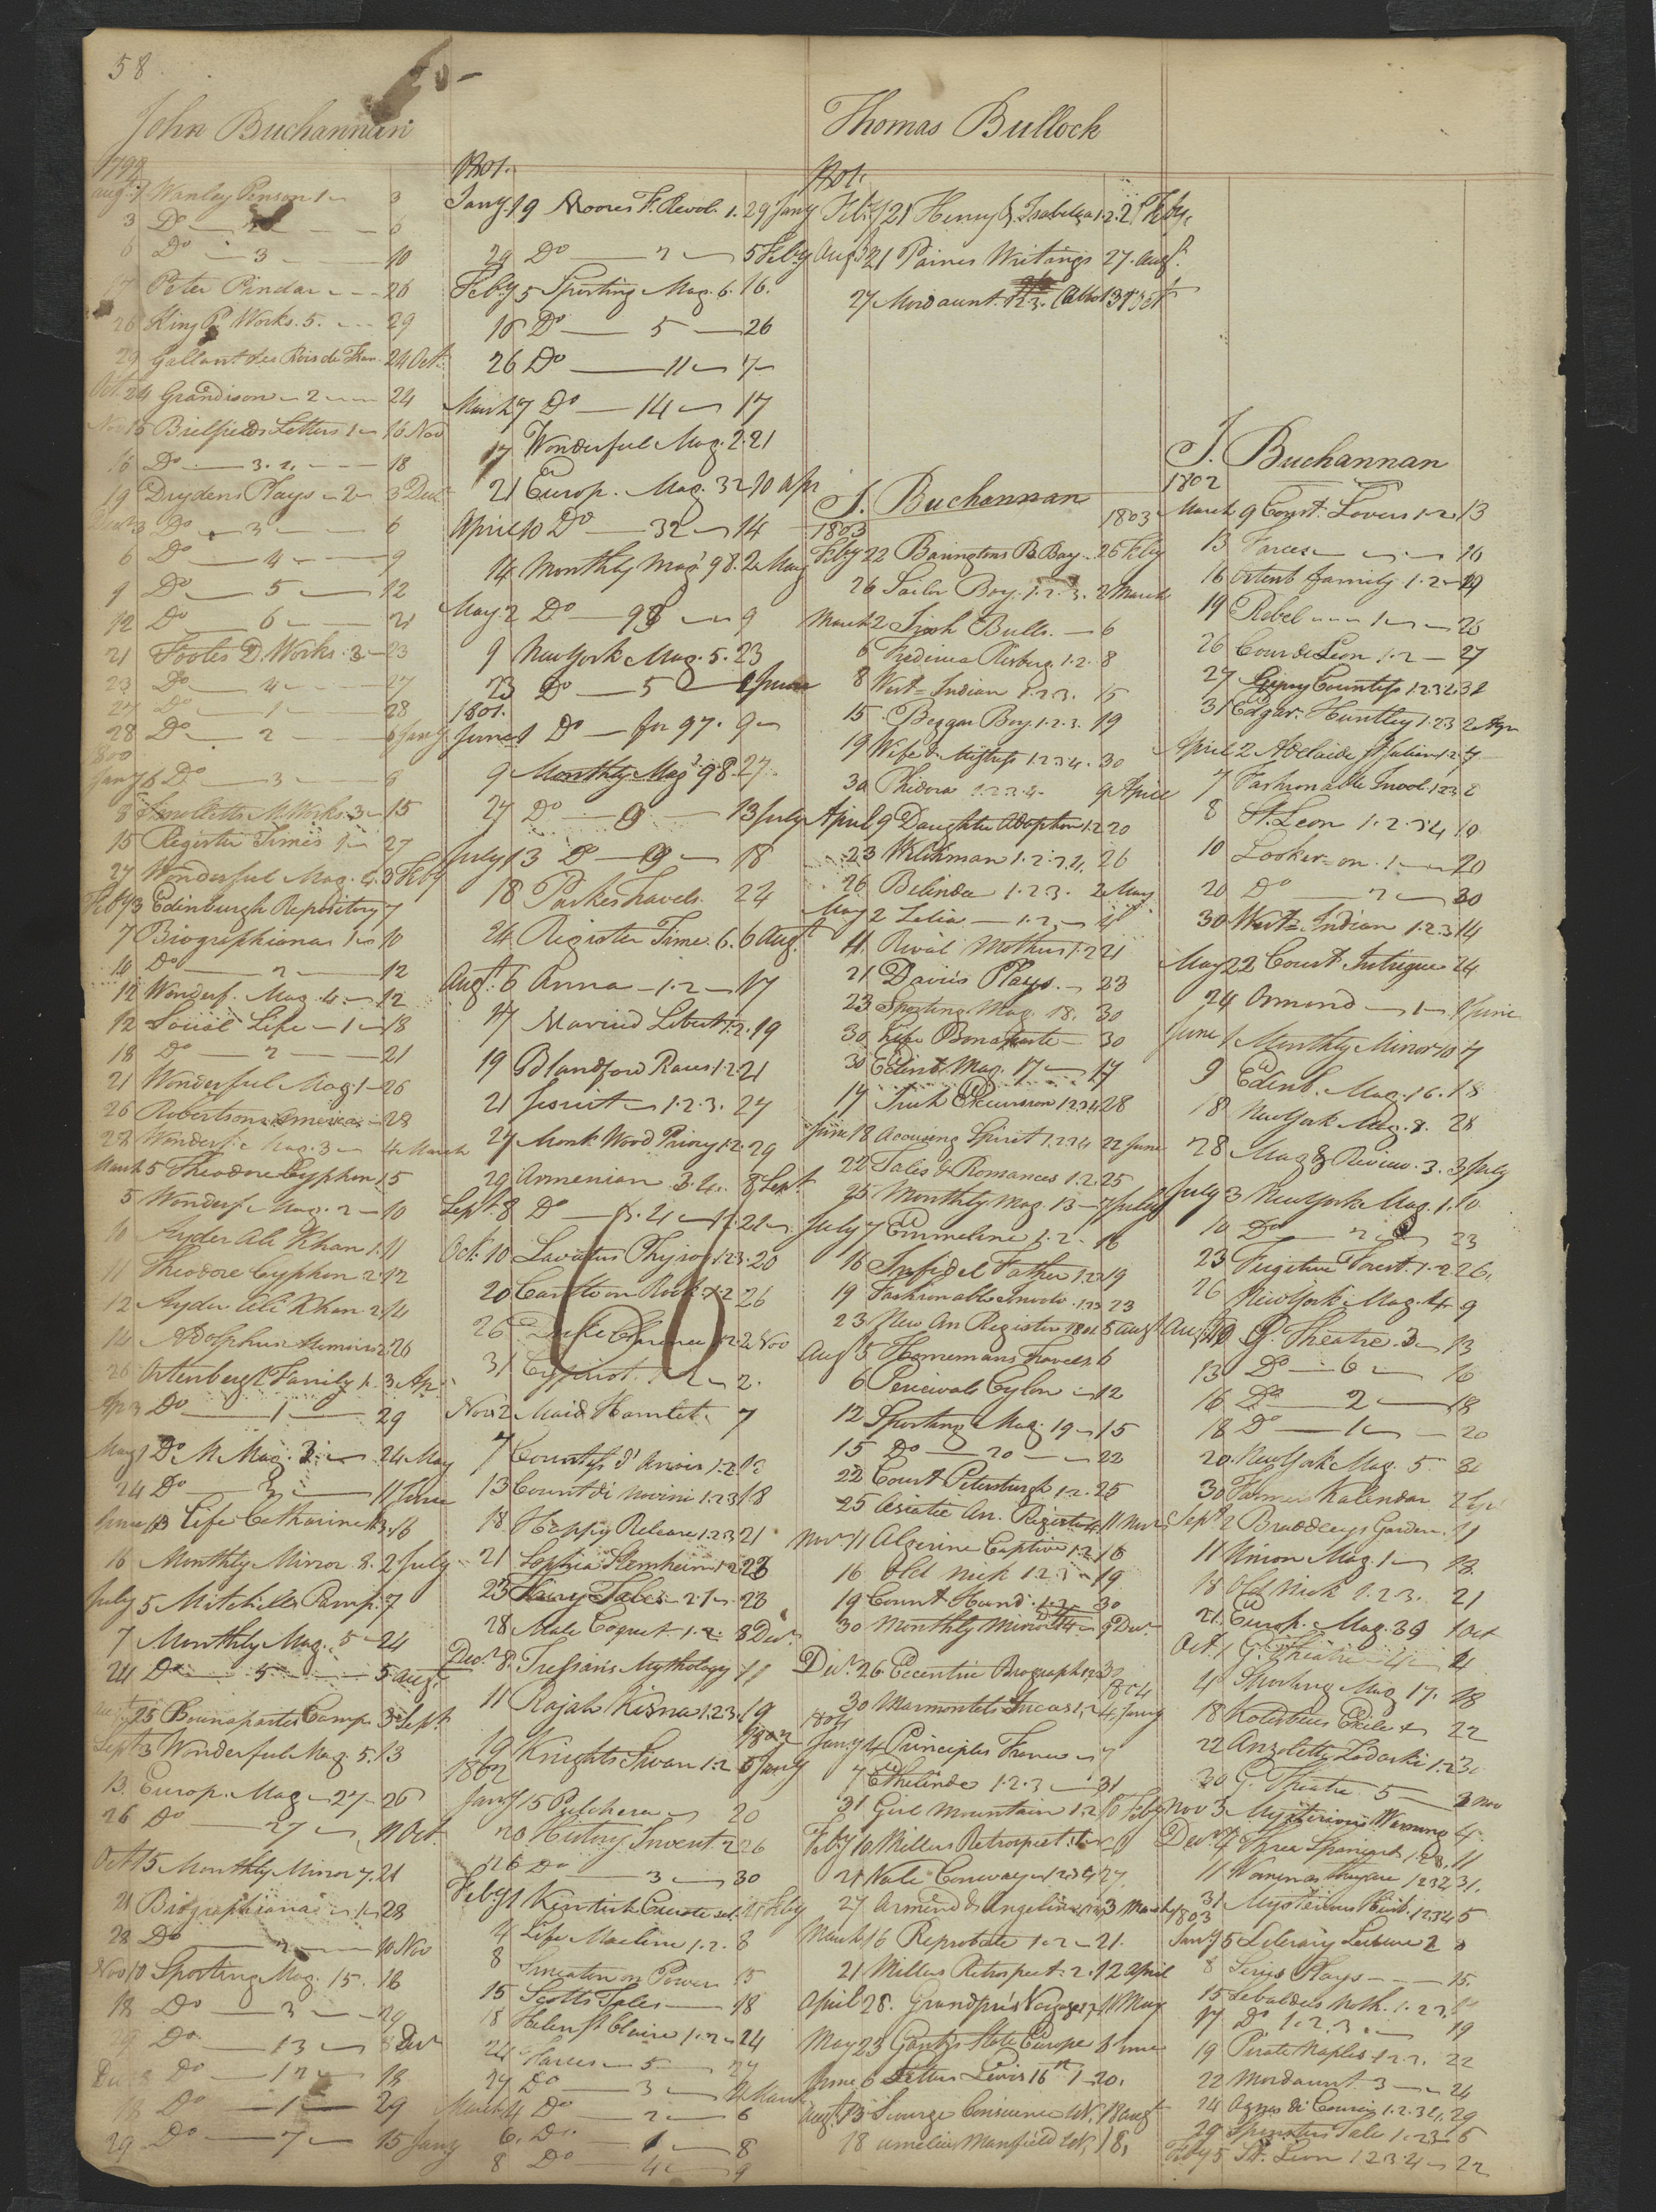 58
John Buchannan
1799
Augt 1 Wanley Penson 1 3
3 Do 6
6 Do 3 10
17 Peter Pindar 26
26 King P. Works. 5. 29
29 Gallant des Rois de Fran. 24 Oct.
Oct. 24 Grandison 2 24
Nov 15 Bielfields Letters 1 16 Nov
16 Do 3. 2. 18
19 Drydens Plays 2 3 Decr
Decr 3 Do 3 6
6 Do 4 9
9 Do 5 12
12 Do 6 21
21 Footes D. Works. 3 23
23 Do 4 27
27 Do 1 28
28 Do 2 6 Jany
1800
Jany 6 Do 3 8
8 Smolletts M. Works. 3 15
15 Register Times 1 27
27 Wonderful Mag. 4. 3 Feby
Feby 3 Edinburgh Repository 7
7 Biographiana 1 10
10 Do 2 12
12 Wonderf. Mag. 4. 12
12 Social Life 1 18
18 Do 2 21
21 Wonderful Mag. 1 26
26 Robertsons America 28
28 Wonderf. Mag. 3 4 March
March 5 Theodore Cyphon 1. 5
5 Wonderf. Mag. 2 10
10 Ayder Ali Khan 1. 11
11 Theodore Cyphon 2. 12
12 Ayder Ali Khan 2. 14
14 Adolphus Memoirs 2. 26
26 Ortenberg Family 1. 3 Apr
Apr 3 Do 1 29
May 1 Do M. Mag. 3 24 May
24 Do 3 11 June
June 13 Life Catharine 1.3. 16
16 Monthly Mirror. 8. 2 July
July 5 Mitchills Pamp. 7
7 Monthly Mag. 5 24
24 Do 5 5 Augt
Augt 25 Buonapartes Camp. 3 Sept
Sept 3 Wonderful Mag. 5. 13
13 Europ. Mag. 27 26
26 Do 27 11 Oct
Oct 15 Monthly Mirror 7. 21
21 Biographiana 1 28
28 Do 2 10 Nov
Nov 10 Sporting Mag. 15. 18
18 Do 3 29
29 Do 13 8 Decr
Decr 8 Do 12 18
18 Do 1 29
29 Do 7 15 Jany
1801.
Jany. 19 Moores F. Revol. 1. 29 Jany
29 Do 2 5 Feby
Feby 5 Sporting Mag. 6. 16.
16 Do 5 26
26 Do 11 7
March 7 Do 14 17
17 Wonderful Mag. 2. 21
21 Europ. Mag. 32 10 Apr
April 10 Do 32 14
14 Monthly Mag. 98. 2 May
May 2 Do 98 9
9 New York Mag. 5. 23
23 Do 5 1 June
1801.
June 1 Do for 97. 9
9 Monthly Mag. 98. 27
27 Do 9 13 July
July 13 Do 9 18
18 Parkes Travels. 24
24 Register Time. 6. 6 Augt
Augt. 6 Anna 1. 2 17
17 Married Libert. 1.2. 19
19 Blandford Races 1.2. 21
21 Jesuit 1. 2. 3. 27
27 Monk Wood Priory 1.2. 29
29 Armenian 3. 4. 8 Sept
Sept. 8 Do 3. 4 21
Oct. 10 Lavaters Physiog. 1.2.3. 20
20 Carlton on Rock 1.2 26
26 Duke Clarence 1.2. 2 Nov
31 Cypriot. 1. 2 2.
Nov. 2 Maid Hamlet. 7
7 Countess d'Anois 1.2. 13
13 Count di Novini 1.2.3. 18
18 Happy Release 1.2.3. 21
21 Sophia Sternheim 1.2. 23
23 Fairy Tales 2. 1. 28
28 Male Coquet. 1. 2. 8 Decr.
Decr. 8. Tressans Mythology 11
11 Rajah Kisna 1.2.3. 19
19 Knights Swan 1.2 5 Jany
1802
Jany 15 Pulchera 20
20 History Invent. 2 26
26 Do 3 30
Feby 1 Kentish Curate
4 Life Macline 1. 2. 8
8 Smeaton on Power 15
15 Scotts Tales 18
18 Helen St Claire 1. 2 24
24 Farces 5 27
27 Do 3 4 March
March 4 Do 2 6
6. Do 1 8
8 Do 4 9
Thomas Bullock
1801.
Feby. 21 Henry & Isabella 1.2. 27 Feby.
Augt 21 Paines Writings 27. Augt.
27 Mordaunt. 1.2.3.
J. Buchannan
1803
Feby 22 Baringtons B. Bay. 26 Feby
26 Sailor Boy. 1. 2. 3. 2 March
March 2 Irish Bulls. 6
6 Frederica Risberg. 1. 2. 8
8 West-Indian 1.2.3. 15
15 Beggar Boy. 1. 2. 3. 19
19 Wife & Mistress 1.2.3.4. 30
30 Phedora 1. 2. 3. 4. 9 April
April 9 Daughter Adoption 1.2 20
23 Welchman 1. 2. 3. 4. 26
26 Belinda 1. 2. 3. 2 May
May 2 Lelia 1. 2. 11
11 Rival Mothers 1.2 21
21 Davis's Plays. 23
23 Sporting Mag. 18. 30
30 Life Bonaparte 30
30 Edinb. Mag. 17 17
17 Irish Excursion 1.2.3.4. 28
June 18 Accusing Spirit 1.2.3.4 22 June
22 Tales & Romances 1. 2. 25
25 Monthly Mag. 13 7 July
July 7 Emmeline 1. 2. 16
16 Infidel Father 1.2.3 19
19 Fashionable Involv. 1.2.3 23
23 New An Register 1801 5 Augt
Augt 5 Hornemans Travels 6
6 Percivals Ceylon 12
12 Sporting Mag. 19 15
15 Do 20 22
22 Court Petersburgh 1. 2. 25
25 Asiatic An. Register 11 Nov
Nov. 11 Algerine Captive 1. 2 16
16 Old Nick 1. 2. 3 19
19 Count & Hund. 1. 2. 30
30 Monthly Mirror 14 9 Decr.
Decr. 26 Eccentric Biography 30
1804
30 Marmontels Incas 1.2. 4 Jany
1804
Jany. 4 Principles France 7
7 Ethelinde 1. 2. 3 31
31 Girl Mountain 1. 2. 10 Feby
Feby 10 Millers Retrospect
21 Vale Conway 1.2.3.4. 27.
27 Armand & Angelina 3 March
March 16 Reprobate 1. 2 21.
21 Millers Retrospect. 2. 12 April
April 28. Grandpre's Voyages 1.2 11 May
May 23 Gentz's State Europe 8 June
June 8 Letters Lewis 16th 1 20.
Augt. 13 Scourge Conscience 18 Augt
18 Amelia Mansfield 18.
J. Buchannan
1802
March 9 Const. Lovers 1.2. 13
13 Farces 16
16 Ortenb family 1. 2 19
19 Rebel 1 26
26 Coeur de Leon 1. 2 27
27 Gypsey Countess 1.2.3.4. 31
31 Edgar. Huntley 1.2.3 2 Apr
April 2 Adelaide St Julian 1.2. 7
7 Fashionable Invol. 1.2.3 8
8 St. Leon 1. 2. 3. 4 10
10 Looker-on. 1 20
20 Do 2 30
30 West-Indian 1.2.3 14
May 22 Court Intrigue 24
24 Ormond 1 1 June
June 1 Monthly Mirror 10 7
9 Edinb. Mag. 16. 18
18 New York Mag. 8. 28
28 Mag & Review. 3. 3 July
July 3 New York Mag. 1. 10
10 Do 2 23
23 Fugitive Forest. 1. 2 26.
26 New York Mag. 4. 9
Aug. 10 G. Theatre. 3 13
13 Do 6 16
16 Do 2 18
18 Do 1 20
20 New York Mag. 5 30
30 Farmers Kalendar 2 Sep
Sept 2 Braddleys Garden. 11
11 Union Mag. 1 18.
18 Old Nick 1. 2. 3. 21
21. Europ. Mag. 39 1 Oct
Oct. 1 G. Theatre 4 4
4 Sporting Mag. 17. 18
18 Kotzebues Exile 22
22 Anzoletta Zadoski 1.2 30
30 G. Theatre 5 3 Nov
Nov 3. Mysterious Warning 4.
Decr. 4 Three Spaniards 1.2.3. 11
11 Woman as they are 1.2.3.4. 31.
31 Mysterious Husb. 1.2.3.4 5
1803
Jany 5 Literary Leisure 2 8
8 Sirius Plays 15.
15 Lebaldels Noth. 1. 2. 3. 17
17 Do 1. 2. 3. 19
19 Pirate Naples. 1. 2. 3. 22
22 Mordaunt 3 24
24 Agnes di Courcy 1. 2. 3. 4. 29
29 Spinsters Tale 1. 2.3 5
Feby 5 St. Leon 1 2.3.4 22